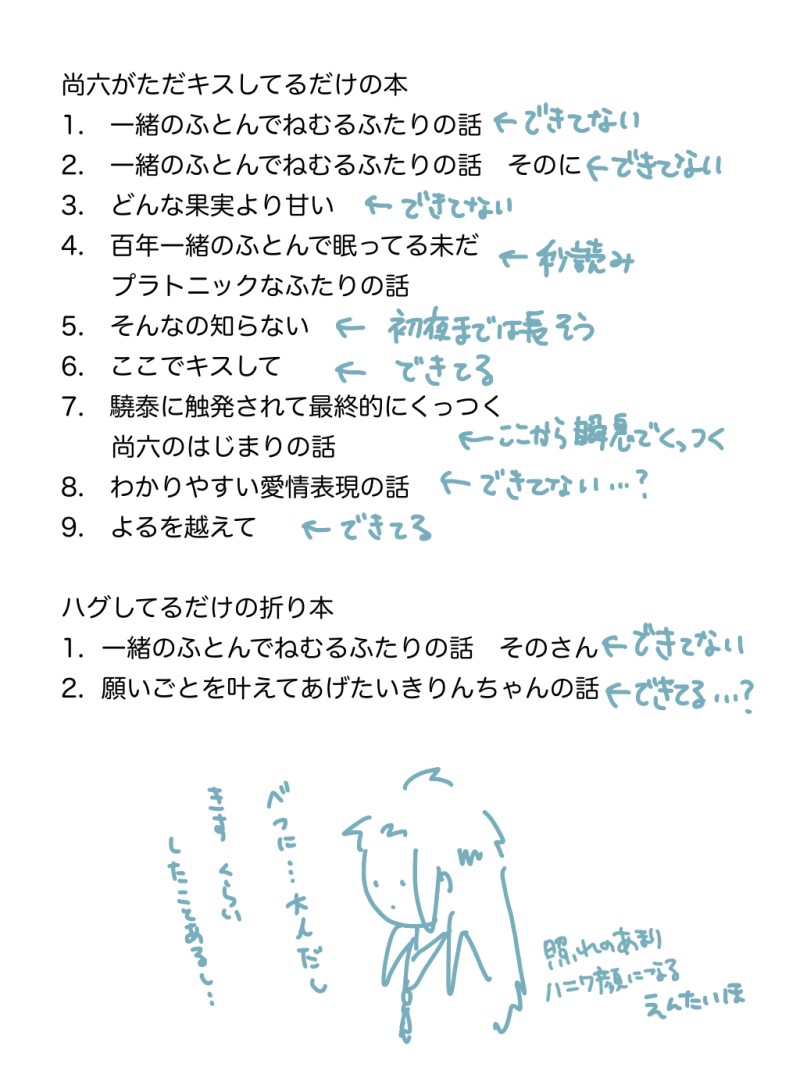 尚六がただキスしてるだけの本
1. 一緒のふとんでねむるふたりの話 ←できてない
2. 一緒のふとんでねむるふたりの話 そのに ←できてない
3. どんな果実より甘い ←できてない
4. 百年一緒のふとんで眠ってる未だ
プラトニックなふたりの話 ←秒読み
5. そんなの知らない ←初夜までは長そう
6. ここでキスして ←できてる
7. 驍泰に触発されて最終的にくっつく
尚六のはじまりの話 ←ここから瞬息でくっつく
8. わかりやすい愛情表現の話 ←できてない…?
9. よるを越えて ←できてる
ハグしてるだけの折り本
1. 一緒のふとんでねむるふたりの話 そのさん ←できてない
2. 願いごとを叶えてあげたいきりんちゃんの話 ←できてる…?
べつに…大人だし
きすくらい
したことあるし…
照れのあまり
ハニワ顔になる
えんたいほ